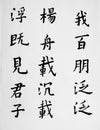 我百朋泛泛
楊舟載沉載
浮既見君子